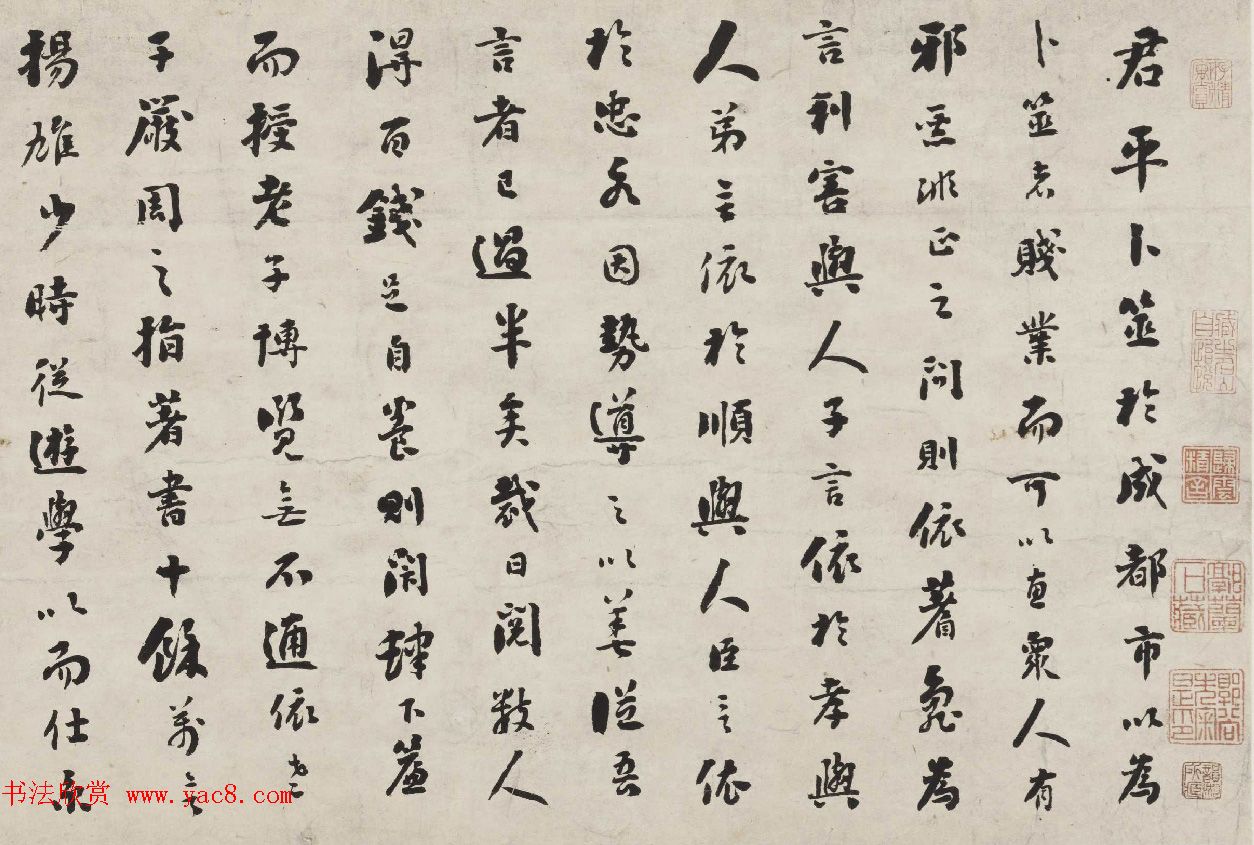 君平卜筮於成都市以為
卜筮者賤業而可以惠衆人有
邪惡非正之问則依蓍龜為
言利害與人子言依於孝與
人弟言依於順與人臣言依
於忠各因勢導之以善從吾
言者已過半矣裁日閱數人
得百錢足自養則閉肆下簾
而授老子博覽無不通依老
子嚴周之指著書十餘萬言
揚雄少時從遊學以而仕京
书法欣赏 www.yac8.com